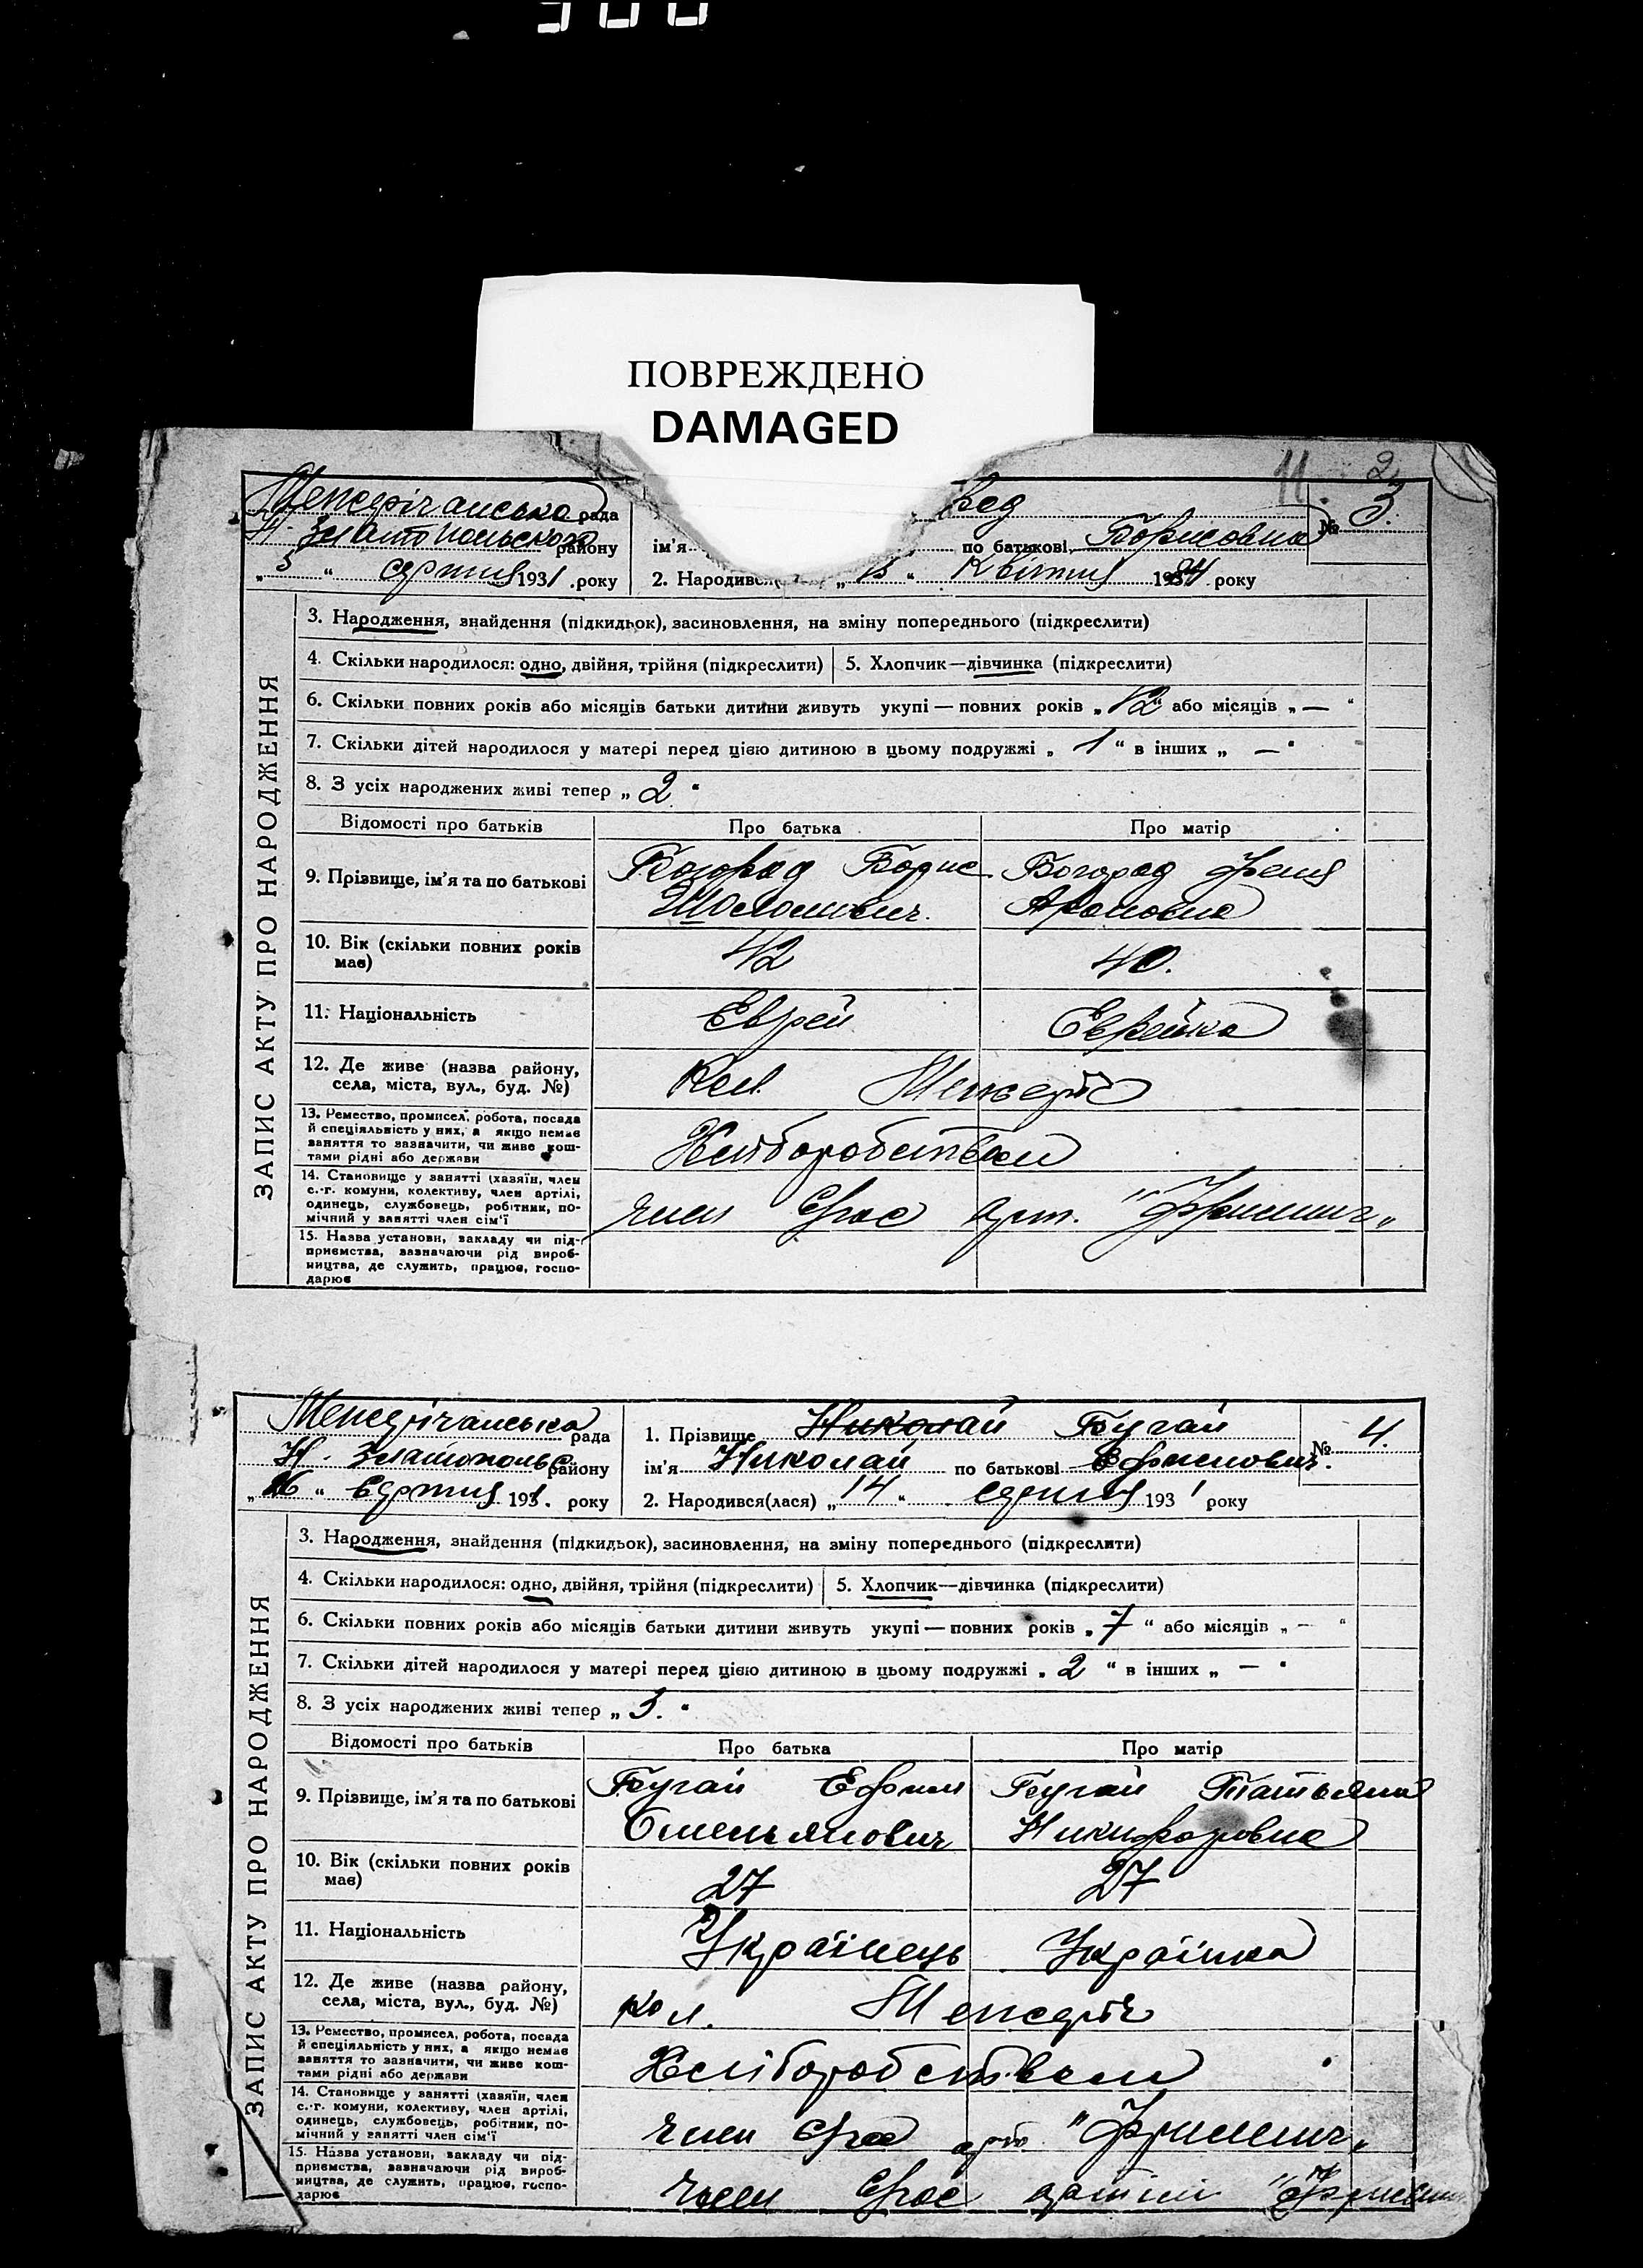 900
ПОВРЕЖДЕНО
DAMAGED
11 2
Межерічанська рада
Н. Златопольского району
„ 5 “ серпня 1931 .року
рад
ім'я по батькові Борисовна
№ 3.
2. Народився( „ 15 “ Квітня 1924 року
ЗАПИС АКТУ ПРО НАРОДЖЕННЯ
3. Народження, знайдення (підкидьок), засиновлення, на зміну попереднього (підкреслити)
4. Скільки народилося: одно, двійня, трійня (підкреслити) 5. Хлопчик—дівчинка (підкреслити)
6. Скільки повних років або місяців батьки дитини живуть укупі — повних років „ 12 “ або місяців „ — “
7. Скільки дітей народилося у матері перед цією дитиною в цьому подружжі „ 1 “ в інших „ — “
8. З усіх народжених живі тепер „ 2 “
Відомості про батьків Про батька Про матір
9. Прізвище, ім'я та по батькові Богорад Борис Богорад Феня
Шоломович. Ароновна
10. Вік (скільки повних років має) 42 40.
11. Національність Еврей Еврейка
12. Де живе (назва району, села, міста, вул., буд. №) Кол. Межеріч
13. Ремество, промисел, робота, посада й спеціяльність у них, а якщо немає заняття то зазначити, чи живе коштами рідні або держави Хліборобством
14. Становище у занятті (хазяїн, член с.-г. комуни, колективу, член артілі, одинець, службовець, робітник, помічний у занятті член сім'ї член арт.
15. Назва установи, закладу чи підприємства, зазначаючи рід виробництва, де служить, працює, господарює
Межерічанська рада
Н. Златополье району
„ 16 “ Серпня 1931. року
1. Прізвище Николай Бугай
ім'я Николай по батькові Ефимович.
№ 4.
2. Народився(лася) „ 14 “ серпня 1931 року
ЗАПИС АКТУ ПРО НАРОДЖЕННЯ
3. Народження, знайдення (підкидьок), засиновлення, на зміну попереднього (підкреслити)
4. Скільки народилося: одно, двійня, трійня (підкреслити) 5. Хлопчик—дівчинка (підкреслити)
6. Скільки повних років або місяців батьки дитини живуть укупі — повних років „ 7 “ або місяців „ — “
7. Скільки дітей народилося у матері перед цією дитиною в цьому подружжі „ 2 “ в інших „ — “
8. З усіх народжених живі тепер „ 3. “
Відомості про батьків Про батька Про матір
9. Прізвище, ім'я та по батькові Бугай Ефим Бугай Татьяна
Омельянович Никифоровна
10. Вік (скільки повних років має) 27 27
11. Національність Українець Українка
12. Де живе (назва району, села, міста, вул., буд. №) Кол. Межеріч
13. Ремество, промисел, робота, посада й спеціяльність у них, а якщо немає заняття то зазначити, чи живе коштами рідні або держави Хліборобством
14. Становище у занятті (хазяїн, член с.-г. комуни, колективу, член артілі, одинець, службовець, робітник, помічний у занятті член сім'ї член
15. Назва установи, закладу чи підприємства, зазначаючи рід виробництва, де служить, працює, господарює член